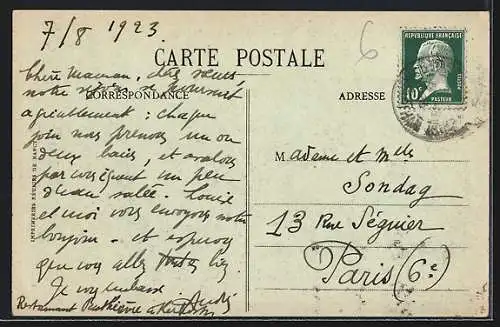 7/8 1923
6
CARTE POSTALE
RÉPUBLIQUE FRANÇAISE
10c
POSTES
PASTEUR
CORRESPONDANCE
ADRESSE
Chère Maman, chères sœurs
notre se poursuit
agréablement : chaque
jour nous prenons un ou
deux bains, et avalons
par conséquent un peu
d'eau salée. Louise
et moi vous envoyons notre
bonjour et espérons
que vous allez bien.
Je vous embrasse
André
Restaurant
IMPRIMERIES RÉUNIES DE NANCY
Madame et Mlles
Sondag
13 Rue Séguier
Paris (6e)